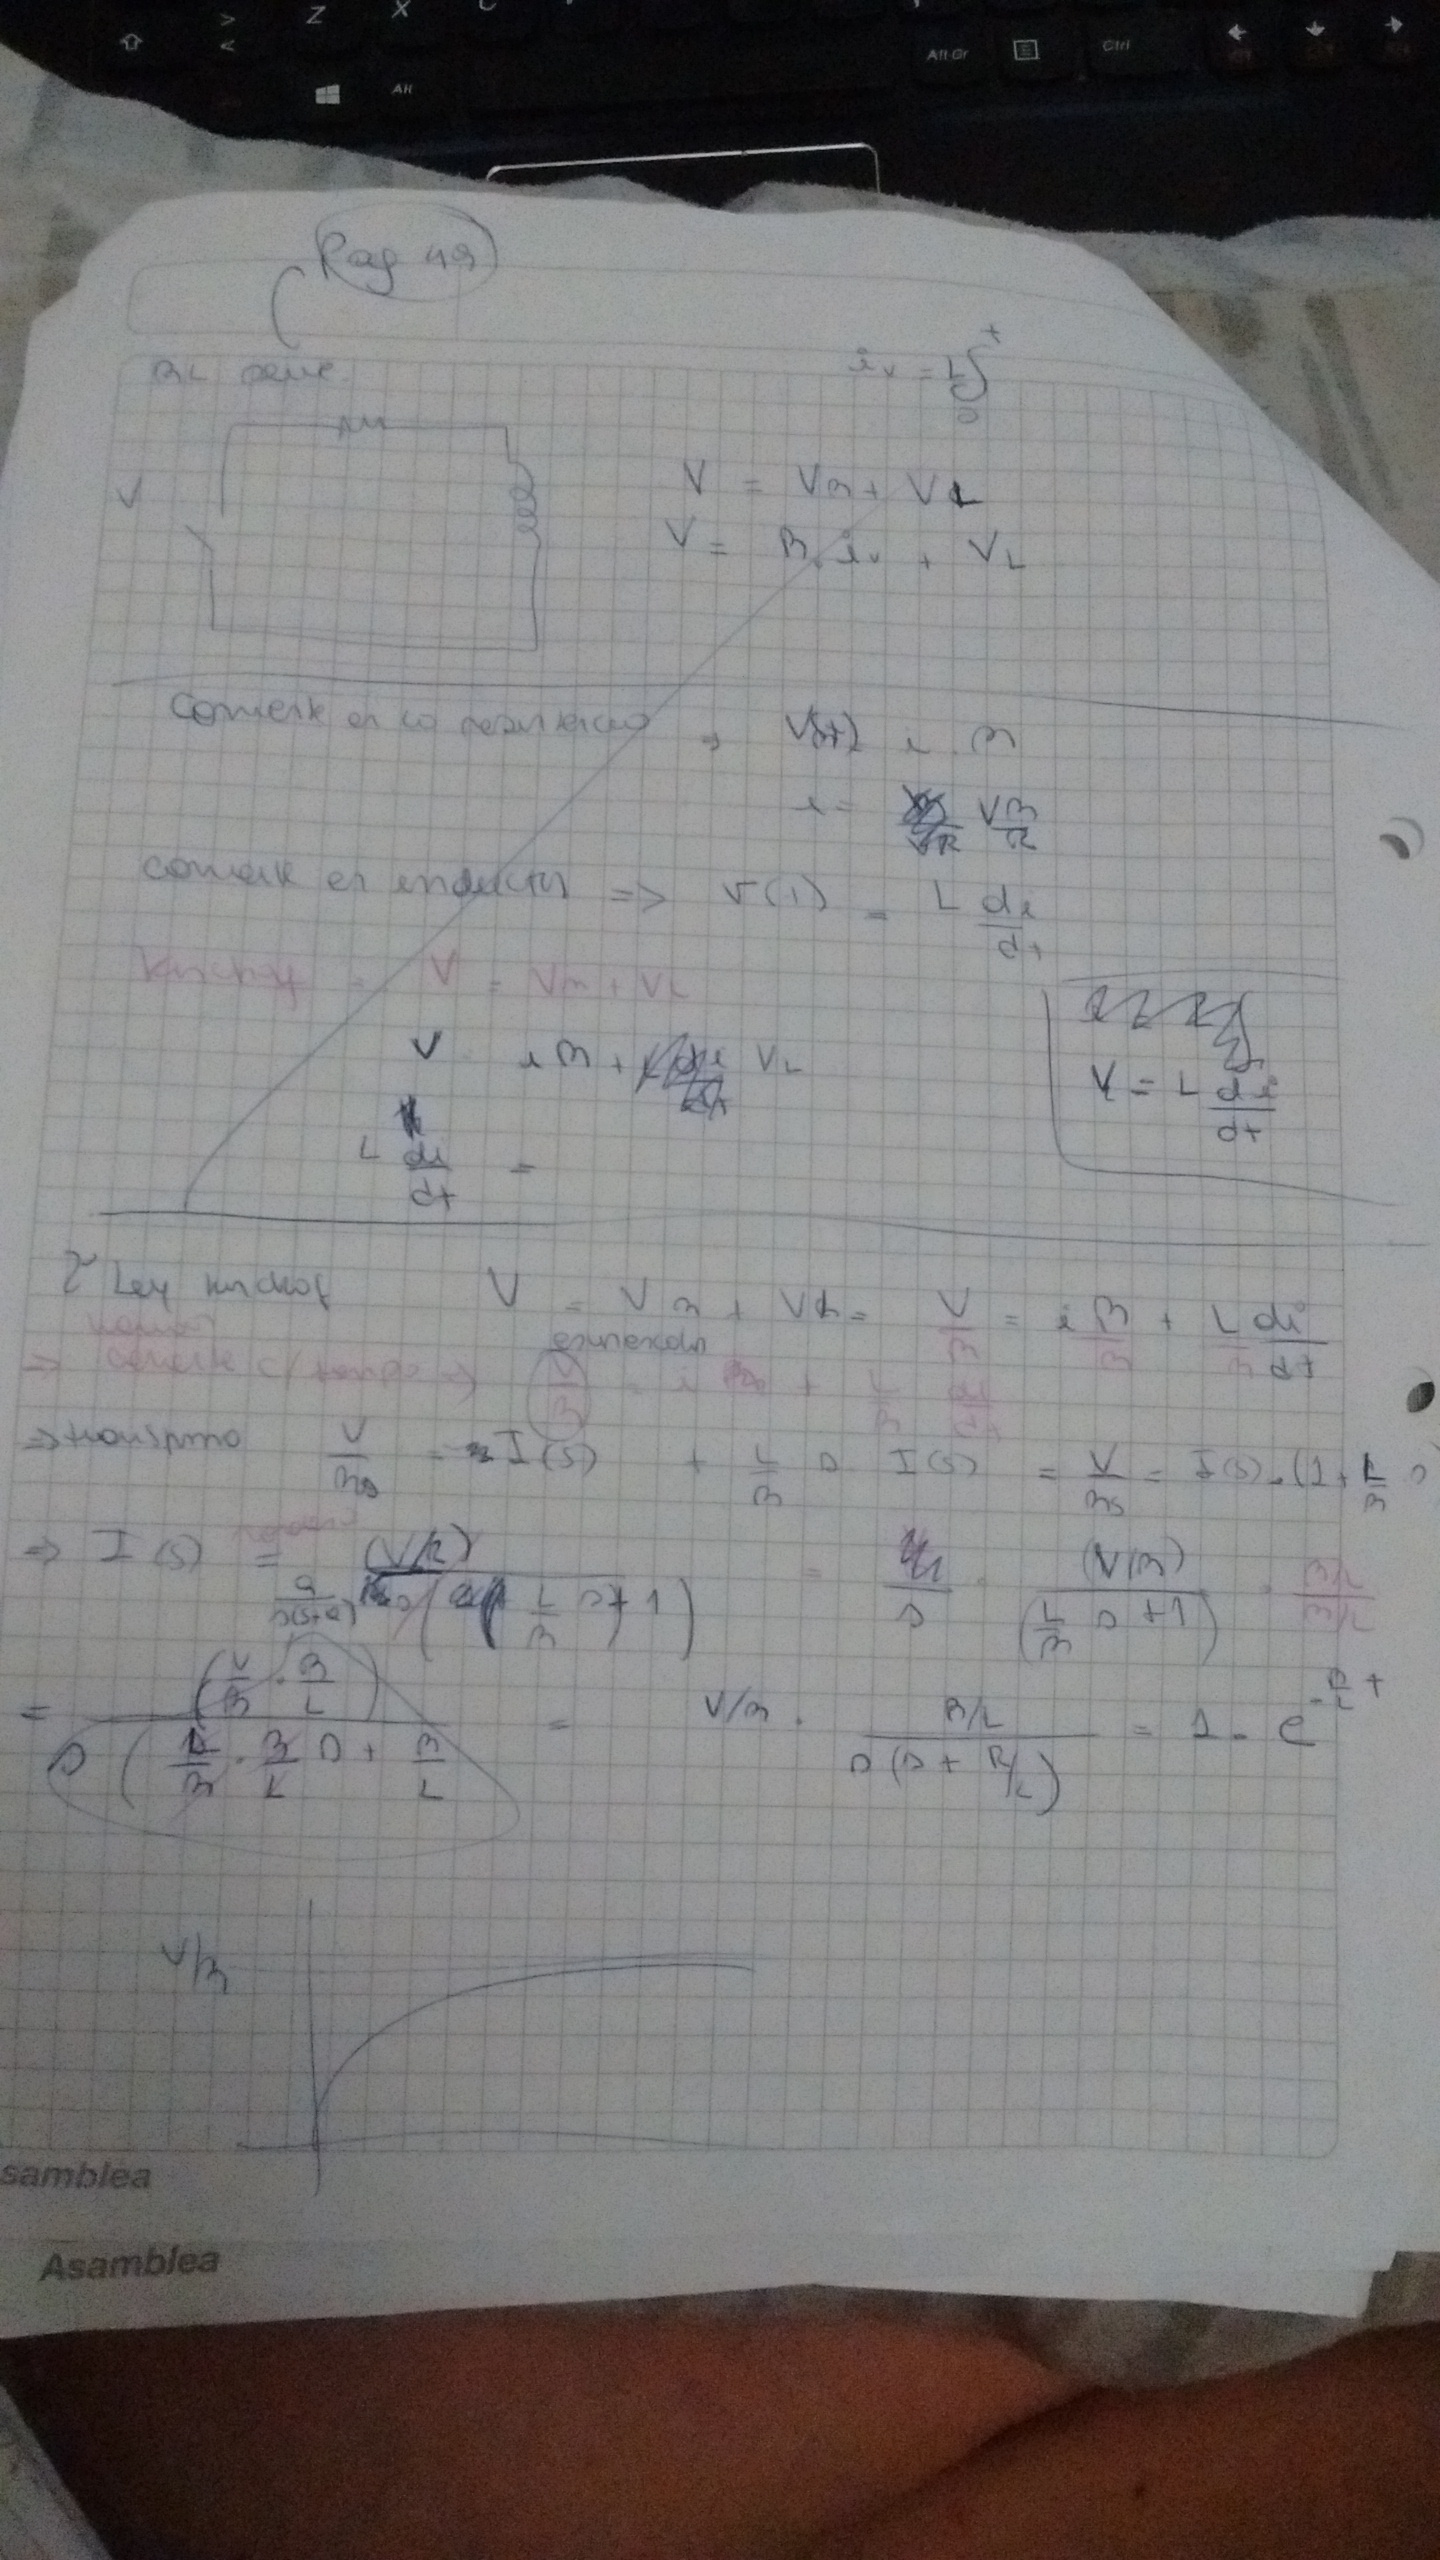 Z X C
> <
Alt Alt Gr Ctrl
Pag 49
RL serie
i_v = L∫ t 0
V
V = VR + VL
V = R . iv + VL
corriente en la resistencia → V(t) i . R
i = VR/R
corriente en inductor => V(t) = L di/dt
Kirchof = V = VR + VL
V iR + VL
V = L di/dt
L di/dt =
2° Ley Kirchof V = VR + VL = V/R = i R/R + L/R di/dt
=> corriente c/ tiempo => V/R = i + L/R di/dt
=> transformo V/Rs = I(s) + L/R s I(s) = V/Rs = I(s) . (1 + L/R s
=> I(s) = (V/R) / s( L/R s + 1) = 1/s . (V/R) / (L/R s + 1) . R/L / R/L
a / s(s+a)
= (V/R . R/L) / s ( L/R . R/L s + R/L = V/R . R/L / s(s + R/L) = 1 - e^-R/L t
V/R
samblea
Asamblea